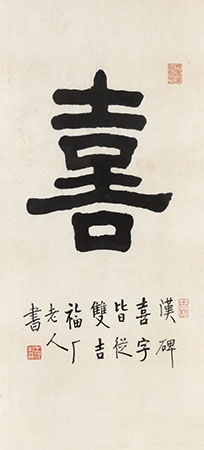 喜
漢碑
喜字
皆從
雙吉
福厂
老人
書